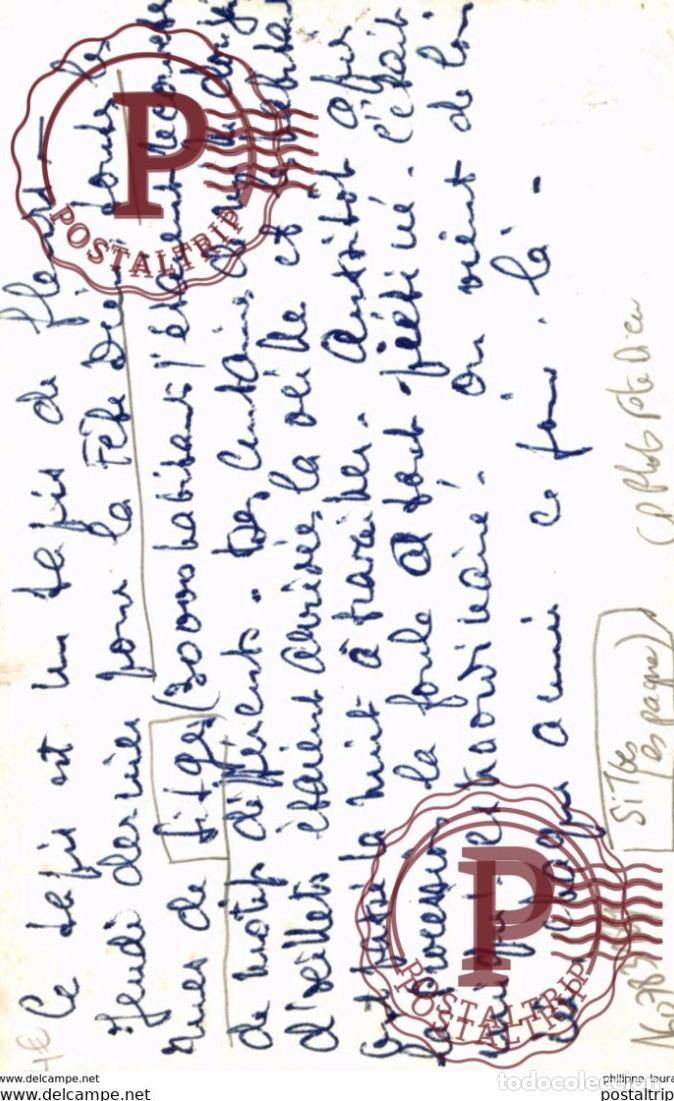 Ce tapis est un tapis de fleurs -
Jeudi dernier pour la Fête Dieu toutes les
rues de Sitges (30000 habitants) étaient recouvertes
de motifs différents. Des centaines
d'œillets étaient arrivées la veille et
la nuit à travailler. Aussitôt après
la procession la foule a tout piétiné. C'était
extraordinaire. On vient de loin
ce jour-là -
SITGES
(espagne)
CP Photo Fête Dieu
4€
POSTALTRIP
POSTALTRIP
POSTALTRIP
www.delcampe.net
www.delcampe.net
todocoleccion
postaltrip